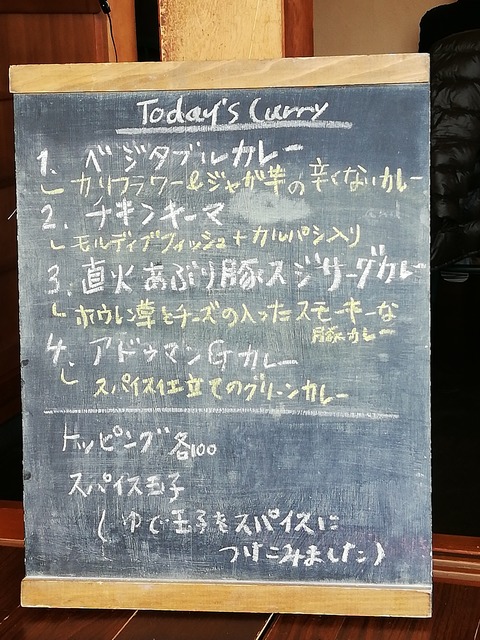 Today's Curry
1. ベジタブルカレー
カリフラワー&ジャガ芋の辛くないカレー
2. チキンキーマ
モルディブフィッシュ+カルパシ入り
3. 直火あぶり豚スジサーグカレー
ホウレン草とチーズの入ったスモーキーな
豚カレー
4. アドゥマンGカレー
スパイス仕立てのグリーンカレー
トッピング各100
スパイス玉子
(ゆで玉子をスパイスに
つけこみました)